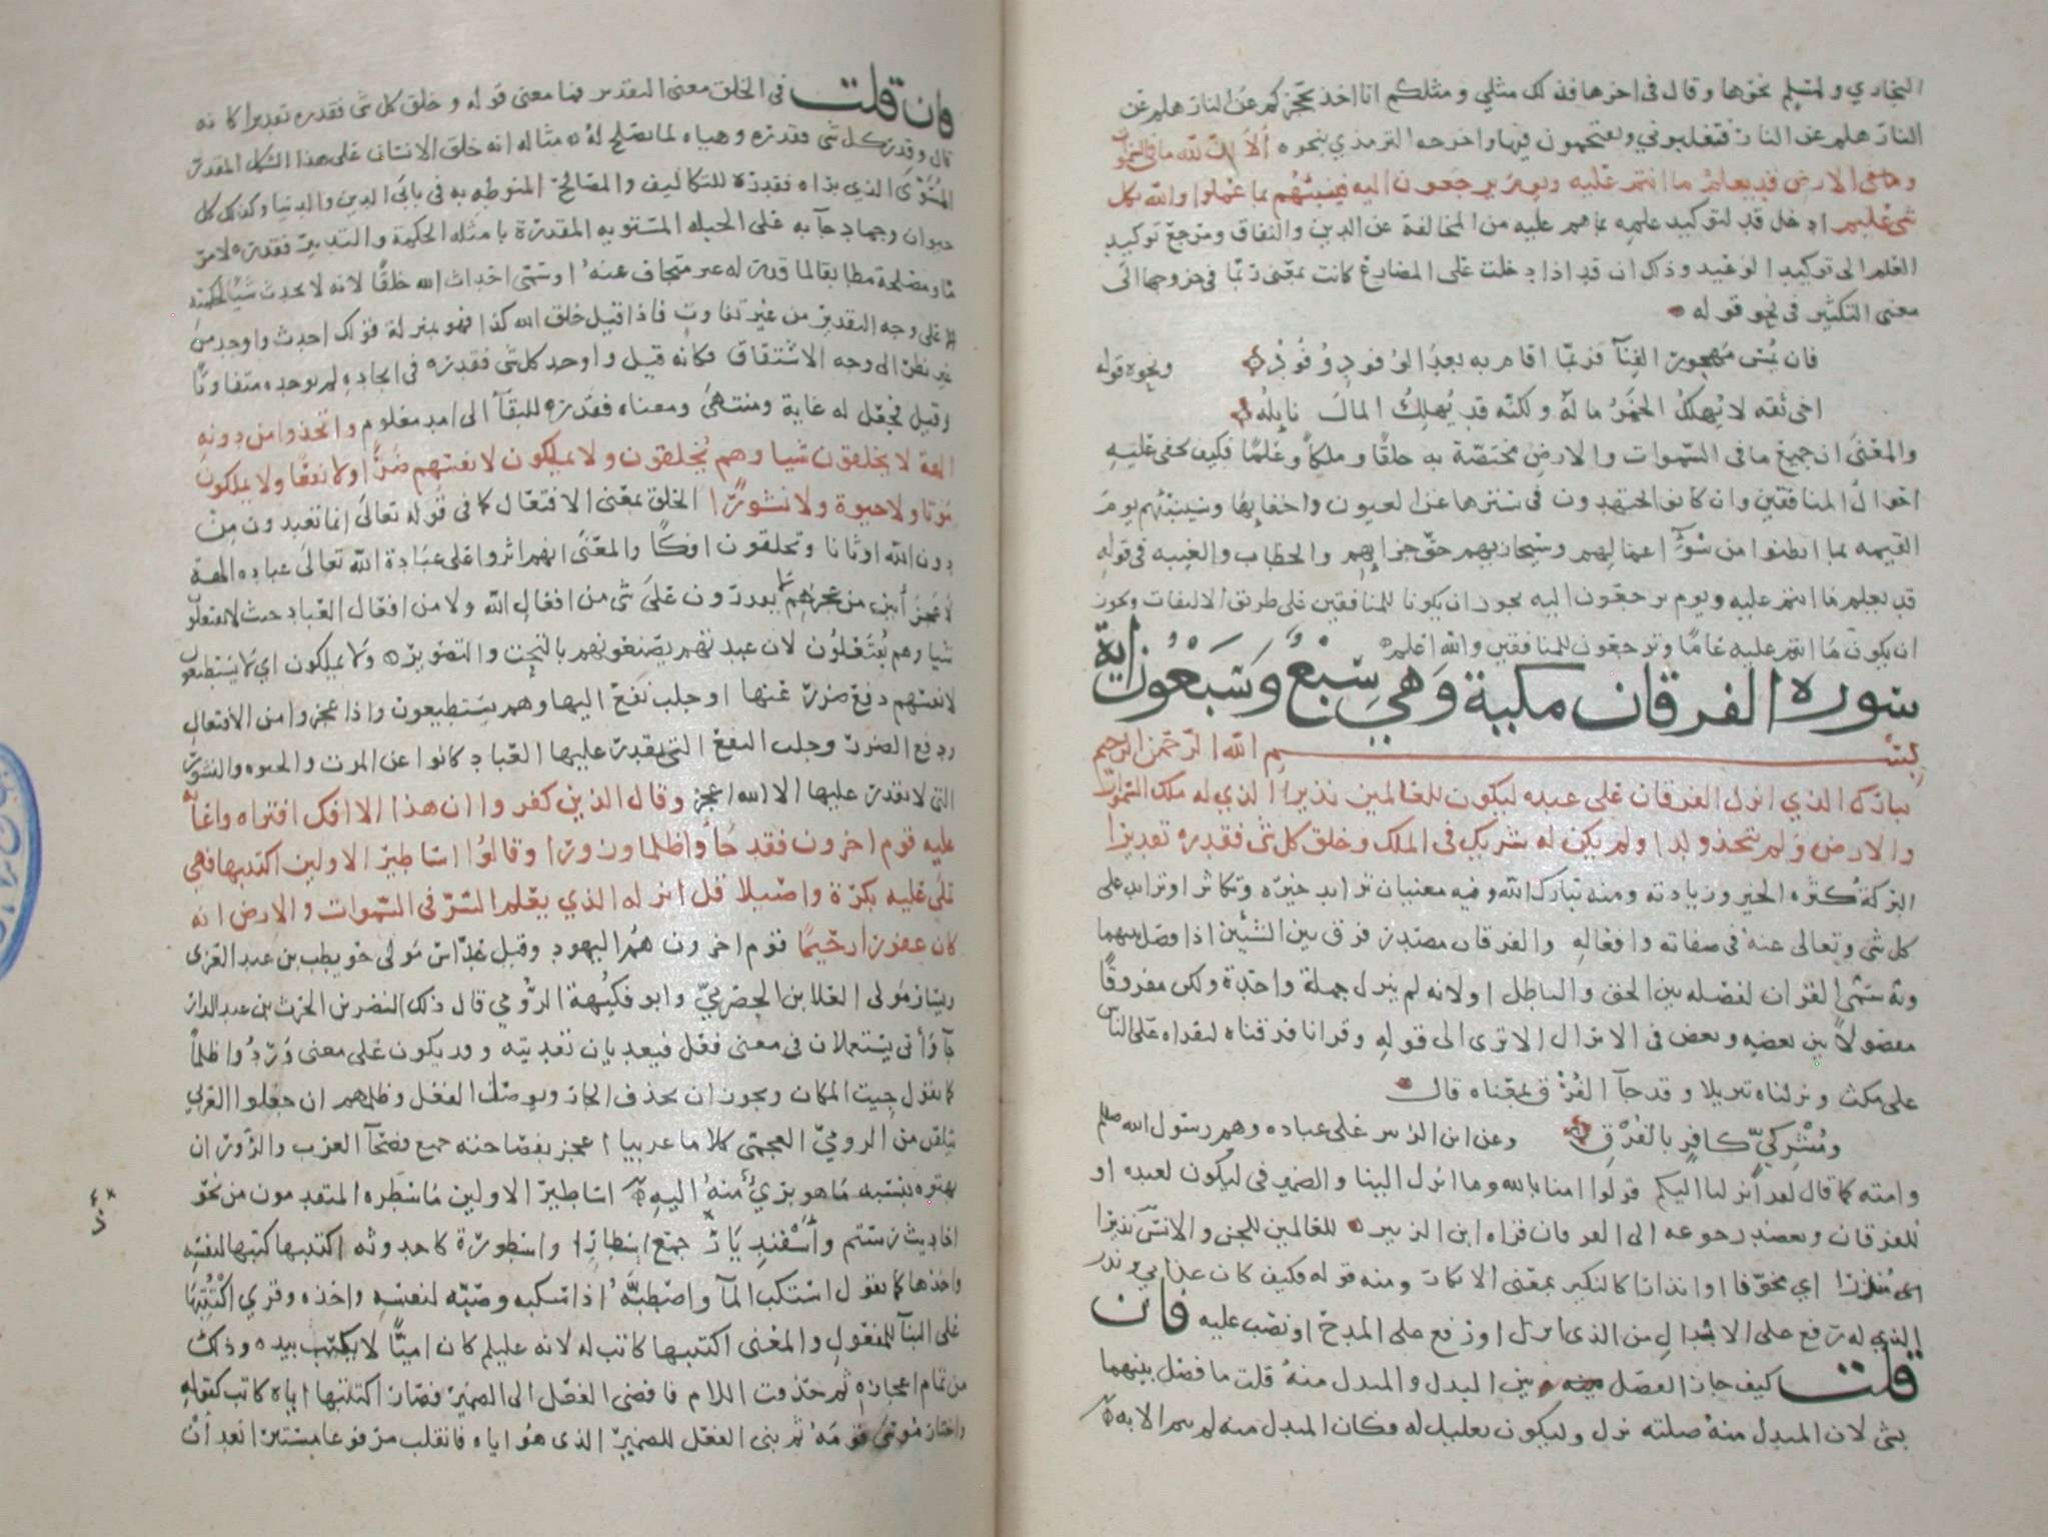 البخاري ولمسلم نحوها وقال في اخرها فذلك مثلي ومثلكم انا اخذ بحجزكم عن النار هلم عن
النار هلم عن النار فتغلبوني وتقتحمون فيها واخرجه الترمذي بنحوه الا ان لله ما في السموات
وما في الارض قد يعلم ما انتم عليه ويوم يرجعون اليه فينبئهم بما عملوا والله بكل
شي عليم ادخل قد لتوكيد علمه بما هم عليه من المخالفة عن الدين والنفاق ومرجع توكيد
العلم الى توكيد الوعيد وذلك ان قد اذا دخلت على المضارع كانت بمعنى ربما في خروجها الى
معنى التكثير في نحو قوله
فان تمس مهجور الفنآ فربما اقام به بعد الوفود وفود ونحوه قوله
اخي ثقه لا يهلك الخمر ماله ولكنه قد يهلك المال نايله
والمعنى ان جميع ما في السموات والارض مختصة به خلقا وملكا وعلما فكيف يخفى عليه
احوال المنافقين وان كانوا يجتهدون في سترها عن العيون واخفايها وسينبئهم يوم
القيمه بما ابطنوا من سوء اعمالهم وسيجازيهم حق جزايهم والخطاب والغيبه في قوله
قد يعلم ما انتم عليه ويوم يرجعون اليه يجوز ان يكونا للمنافقين على طريق الالتفات ويجوز
ان يكون ما انتم عليه عاما ويرجعون للمنافقين والله اعلم
سورة الفرقان مكية وهي سبع وسبعون اية
بسم الله الرحمن الرحيم
تبارك الذي نزل الفرقان على عبده ليكون للعالمين نذيرا الذي له ملك السموات
والارض ولم يتخذ ولدا ولم يكن له شريك في الملك وخلق كل شي فقدره تقديرا
البركة كثرة الخير وزيادته ومنه تبارك الله وفيه معنيان تزايد خيره وتكاثر او تزايد على
كل شي وتعالى عنه في صفاته وافعاله والفرقان مصدر فرق بين الشيئين اذا فصل بينهما
وبه سمي القران لفصله بين الحق والباطل او لانه لم ينزل جملة واحدة ولكن مفروقا
مفصولا بين بعضه وبعض في الانزال الا ترى الى قوله وقرانا فرقناه لتقراه على الناس
على مكث ونزلناه تنزيلا وقد جآ الفرق بمعناه قال
ومشركي كافر بالفرق وعن ابن الزبير على عباده وهم رسول الله صلعم
وامته كما قال لقد انزلنا اليكم قولوا امنا بالله وما انزل الينا والضمير في ليكون لعبده او
للفرقان ويعضد رجوعه الى الفرقان قراه ابن الزبير للعالمين للجن والانس نذيرا
اي منذرا اي مخوفا او انذارا كالنكير بمعنى الانكار ومنه قوله فكيف كان عذابي ونذر
الذي له رفع على الابدال من الذي نزل او رفع على المدح او نصب عليه فان
قلت كيف جاز الفصل بين البدل والمبدل منه قلت ما فصل بينهما
بشي لان المبدل منه صلته نزل وليكون تعليل له فكان المبدل منه لم يتم الا به
وان قلت في الخلق معنى التقدير فما معنى قوله وخلق كل شي فقدره تقديرا كانه
قال وقدر كل شي فقدره وهياه لما يصلح له مثاله انه خلق الانسان على هذا الشكل المقدر
المسوى الذي يراه فقدره للتكاليف والمصالح المنوطه به في بابي الدين والدنيا وكذلك كل
حيوان وجماد جآ به على الجبله المستويه المقدرة بامثله الحكمة والتدبير فقدره لامر
ما ومصلحة مطابقا لما قدر له غير متجاف عنه او سمى احداث الله خلقا لانه لا يحدث شيا لحكمته
الا على وجه التقدير من غير تفاوت فاذا قيل خلق الله كذا فهو بمنزلة قولك احدث واوجد من
غير نظر الى وجه الاشتقاق فكانه قيل واوجد كل شي فقدره في ايجاده لم يوجده متفاوتا
وقيل فجعل له غاية ومنتهى ومعناه فقدره للبقآ الى امد معلوم واتخذوا من دونه
الهة لا يخلقون شيا وهم يخلقون ولا يملكون لانفسهم ضرا ولا نفعا ولا يملكون
موتا ولا حيوة ولا نشورا الخلق بمعنى الافتعال كما في قوله تعالى انما تعبدون من
دون الله اوثانا وتخلقون افكا والمعنى انهم اثروا على عبادة الله تعالى عباده الهة
لا عجز ابين من عجزهم لا يقدرون على شي من افعال الله ولا من افعال العباد حيث لا يفتعلون
شيا وهم يفتعلون لان عبدتهم يصنعونهم بالنحت والتصوير ولا يملكون اي لا يستطيعون
لانفسهم دفع ضرر عنها او جلب نفع اليها وهم يستطيعون واذا عجزوا من الافتعال
ودفع الضرر وجلب النفع التي يقدر عليها العباد كانوا عن الموت والحيوه والنشور
التي لا يقدر عليها الا الله اعجز وقال الذين كفروا ان هذا الا افك افتراه واعانه
عليه قوم اخرون فقد جاوا ظلما وزورا وقالوا اساطير الاولين اكتتبها فهي
تملى عليه بكرة واصيلا قل انزله الذي يعلم السر في السموات والارض انه
كان غفورا رحيما قوم اخرون هم اليهود وقيل عداس مولى حويطب بن عبد العزى
ويسار مولى العلا بن الحضرمي وابو فكيهة الرومي قال ذلك النضر بن الحرث بن عبد الدار
جآ واتى يستعملان في معنى فعل فيعديان تعديته وقد يكون على معنى وردوا ظلما
كما نقول جيت المكان ويجوز ان يحذف الجار ويوصل الفعل وظلمهم ان جعلوا العربي
يتلقن من الرومي العجمي كلاما عربيا اعجز بفصاحته جميع فصحآ العرب والزور ان
بهتوه بنسبه ما هو بريء منه اليه اساطير الاولين ما سطره المتقدمون من نحو
احاديث رستم واسفنديار جمع اسطار او اسطورة كاحدوثه اكتتبها كتبها لنفسه
واخذها كما نقول استكب المآ واصطبه اذا سكبه وصبه لنفسه واخذه وقري اكتتبها
على البنآ للمفعول والمعنى اكتتبها كاتب له لانه عليلم كان اميا لا يكتب بيده وذلك
من تمام اعجازه ثم حذفت اللام فافضى الفعل الى الضمير فصار اكتتبها اياه كاتب كقوله
واختار موسى قومه ثم بني الفعل للضمير الذي هو اياه فانقلب مرفوعا مستترا بعد ان